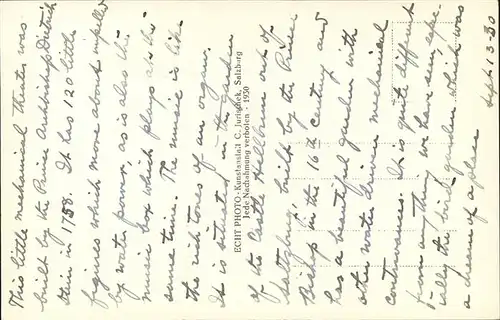 This little mechanical theater was
built by the Prince Archbishop Dietrich
stein in 1758 It has 120 little
figures which move about impelled
by water power as is also the
music box which plays at the
same time. The music is like
the rich tones of an organ.
It is situated in the garden
of the Castle Hellbrun out of
built by the Prince
Bishop in the 16th century and
has a beautiful garden with
other water driven mechanical
contrivances. It is quite different
from anything we have seen, espe-
cially the bird garden which was
a dream of a place
Sept 13-30
ECHT PHOTO-Kunstanstalt C. Jurischek, Salzburg
Jede Nachahmung verboten - 1930